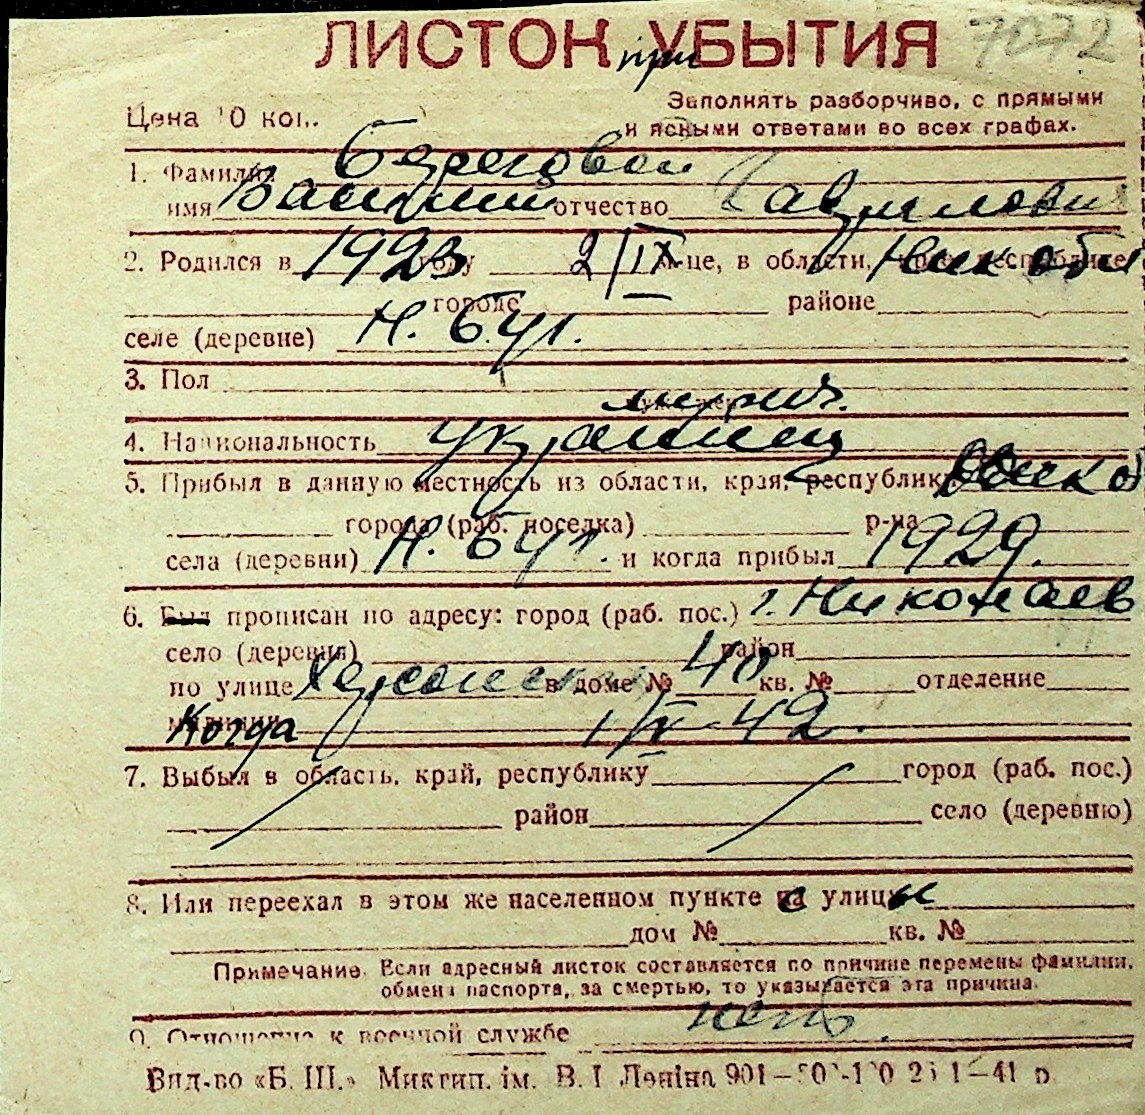 7072
ЛИСТОК при УБЫТИЯ
Цена 10 коп. Заполнять разборчиво, с прямыми
и ясными ответами во всех графах.
1. Фамилия Береговой
имя Василий отчество Гаврилович
2. Родился в 1923 году 2/IX м-це, в области, крае, республике Ник обл
городе районе
селе (деревне) Н. Буг.
3. Пол
мужч.
4. Национальность украинец
5. Прибыл в данную местность из области, края, республики Ник об
города (раб. поселка) р-на
села (деревни) Н. Буг. и когда прибыл 1929.
6. Был прописан по адресу: город (раб. пос.) г. Николаев
село (деревня) район
по улице Херсонская в доме № 40 кв. № отделение
милиции Когда 1/IV-42.
7. Выбыл в область, край, республику город (раб. пос.)
район село (деревню)
8. Или переехал в этом же населенном пункте с улицы
дом № кв. №
Примечание. Если адресный листок составляется по причине перемены фамилии,
обмена паспорта, за смертью, то указывается эта причина.
9. Отношение к военной службе нет
Вид-во «Б. Ш.» Миктип. ім. В. І Леніна 901—41 р.